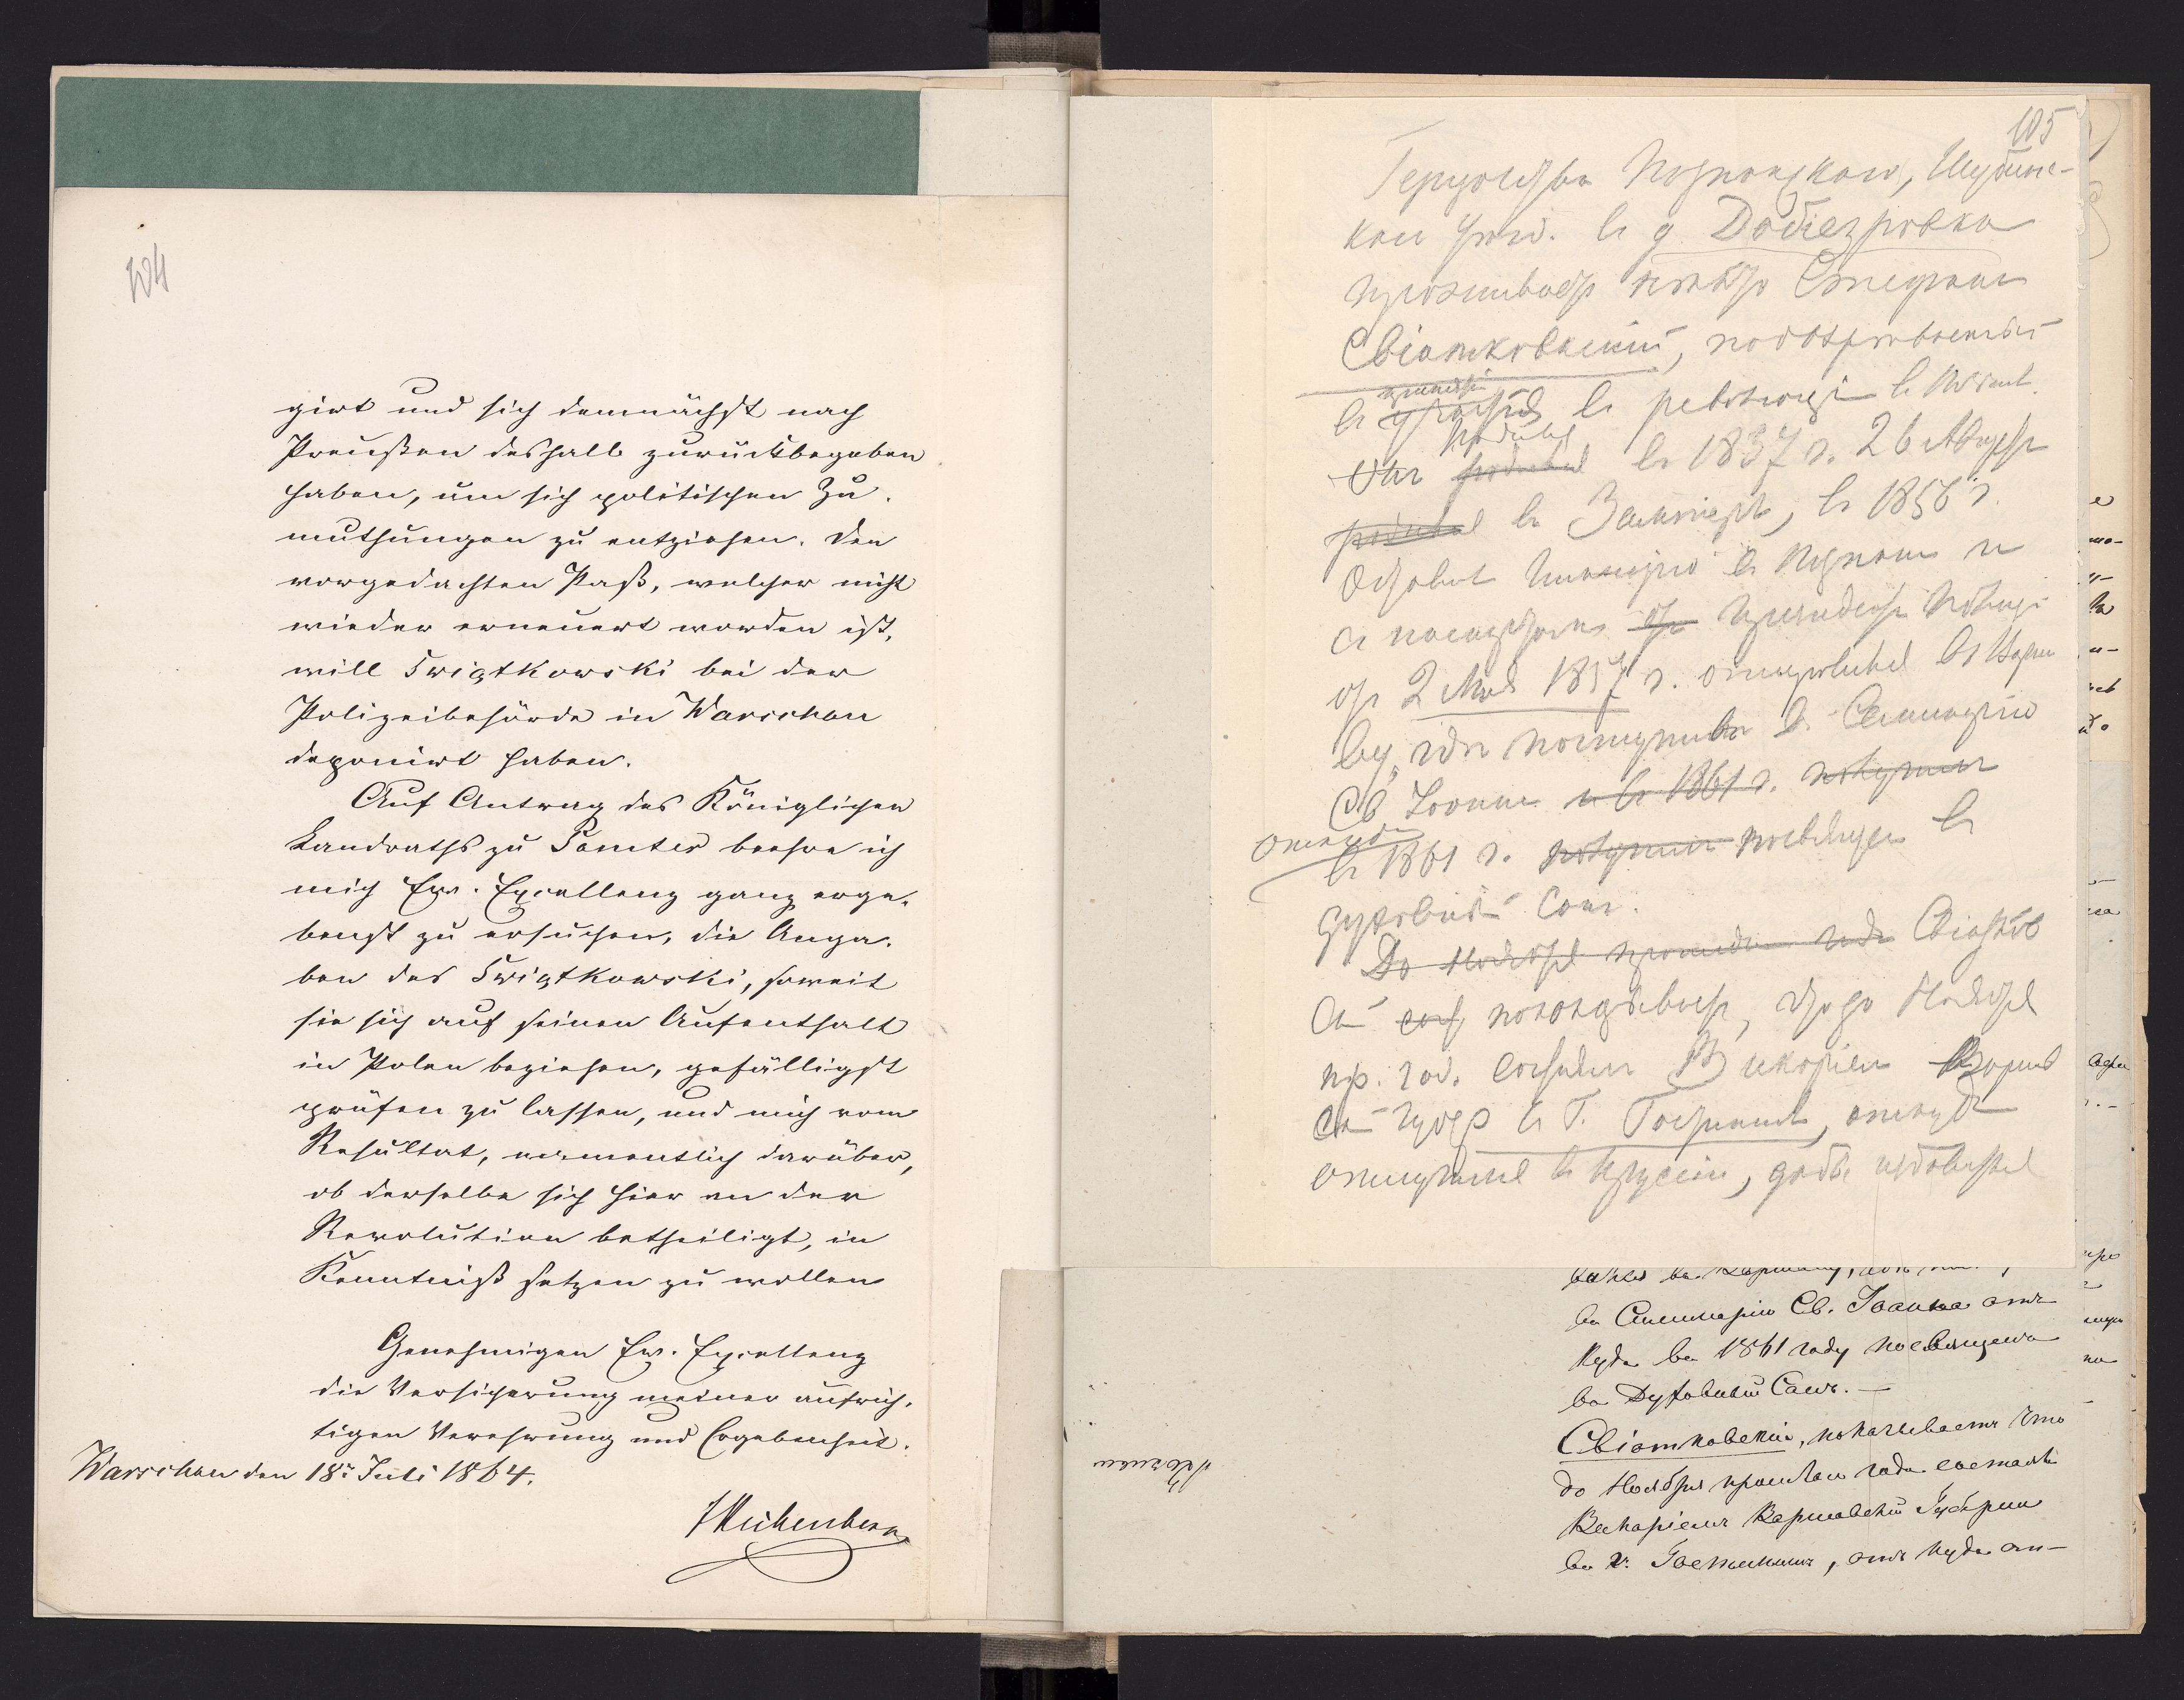 104
girt und sich demnächst nach
Preußen deshalb zurückbegeben
haben, um sich politischen Zu-
muthungen zu entziehen. Den
vorgedachten Paß, welcher nicht
wieder erneuert worden ist,
will Świątkowski bei der
Polizeibehörde in Warschau
deponirt haben.
Auf Antrag des Königlichen
Landraths zu Samter beehre ich
mich Ew. Excellenz ganz erge-
benst zu ersuchen, die Anga-
ben des Świątkowski, soweit
sie sich auf seinen Aufenthalt
in Polen beziehen, gefälligst
prüfen zu lassen, und mich vom
Resultat, namentlich darüber,
ob derselbe sich hier an der
Revolution betheiligt, in
Kenntniß setzen zu wollen
Genehmigen Ew. Excellenz
die Versicherung meiner aufrich-
tigen Verehrung und Ergebenheit.
Warschau den 18n Juli 1864.
105
Герцогства Познанскаго, Шубинс-
каго уезд. въ д.
проживаетъ Стефанъ
Свіатковскій, подозрѣваемый
въ въ революціи въ
родился въ 1837 г. 26 Августа
въ въ 1856 г.
оставилъ Гимназію въ Познани и
съ паспортомъ Полиціи
отъ 2 Мая 1857 г. отправился въ Варша
ву, где поступилъ въ Семинарію
Св. Іоанна и въ 1861 г.
откуда
въ 1861 г. посвященъ въ
Духовный Санъ.
До Ноября прошлаго года Свіатков
скій показываетъ, что до Ноября
пр. год. состоялъ Викаріемъ Варшав
ской губер въ Г. Гостынинѣ, откуда
отправился въ Пруссію, дабы избавиться
въ Семинарію Св. Іоанна отъ
куда въ 1861 году посвященъ
въ Духовный Санъ. —
Свіатковскій, показываетъ что
до Ноября прошлаго года состоялъ
Викаріемъ Варшавской Губерніи
въ г. Гостынинѣ, отъ куда от-